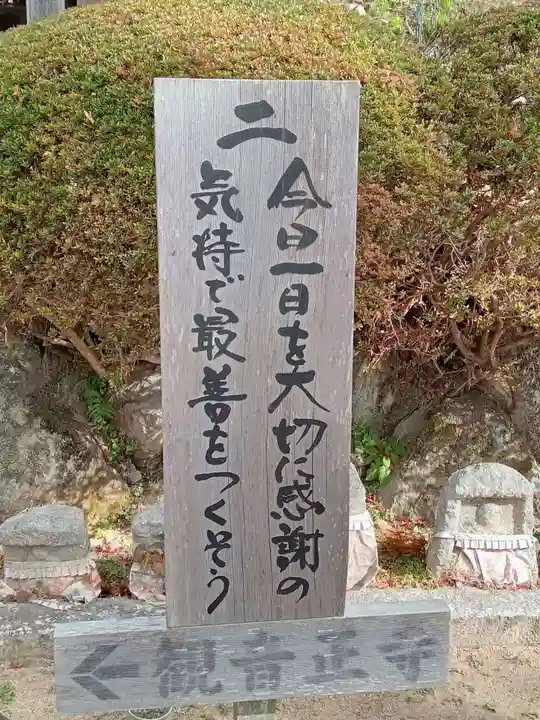 二
今日一日を大切に感謝の
気持で最善をつくそう
観音正寺